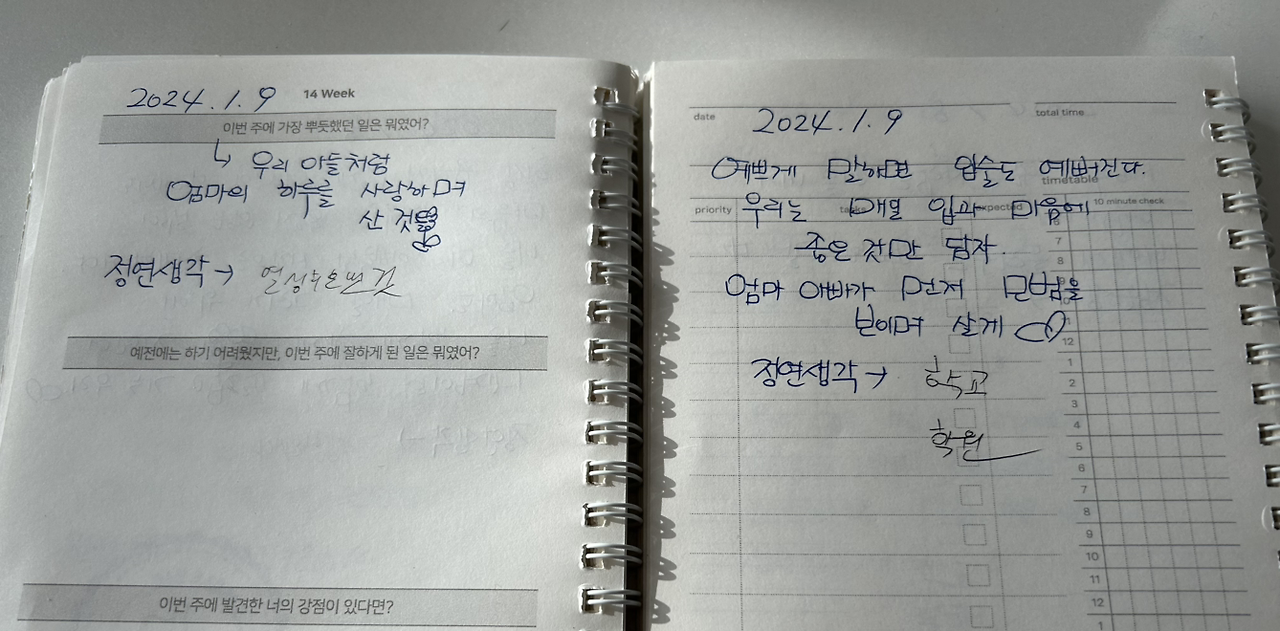 2024.1.9 14 Week
이번 주에 가장 뿌듯했던 일은 뭐였어?
↳ 우리 아들처럼
엄마의 하루를 사랑하며
산 것
정연생각→
예전에는 하기 어려웠지만, 이번 주에 잘하게 된 일은 뭐였어?
이번 주에 발견한 너의 강점이 있다면?
date 2024.1.9 total time
예쁘게 말하면 입술도 예뻐진다.
timetable
priority tasks expected 10 minute check
우리는 매일 입과 마음에
좋은 것만 담자.
엄마 아빠가 먼저 모범을
보이며 살게
정연생각→ 학교
학원
6
7
8
9
10
11
12
1
2
3
4
5
6
7
8
9
10
11
12
1